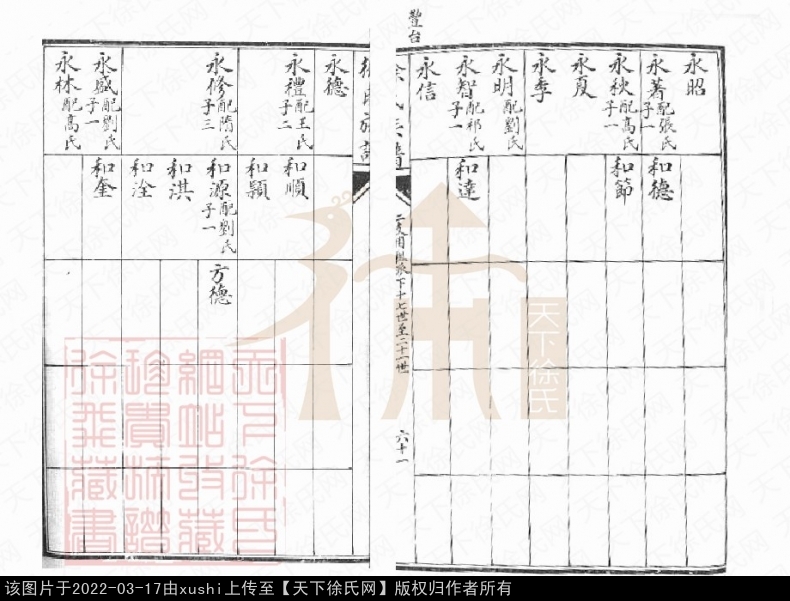 豐台
永昭
永著配張氏子一
永秋配高氏子一
永夏
永季
永明配劉氏
永智配祁氏子一
永信
和德
和節
和達
下十七世至二十一世
六十一
永德
永禮配王氏子二
永修配隋氏子三
永盛配劉氏子一
永林配高氏
和順
和穎
和源配劉氏子一
和淇
和淦
和奎
方德
天下徐氏
天下徐氏
網站收藏
珍貴族譜
徐飛藏書
该图片于2022-03-17由xushi上传至【天下徐氏网】版权归作者所有